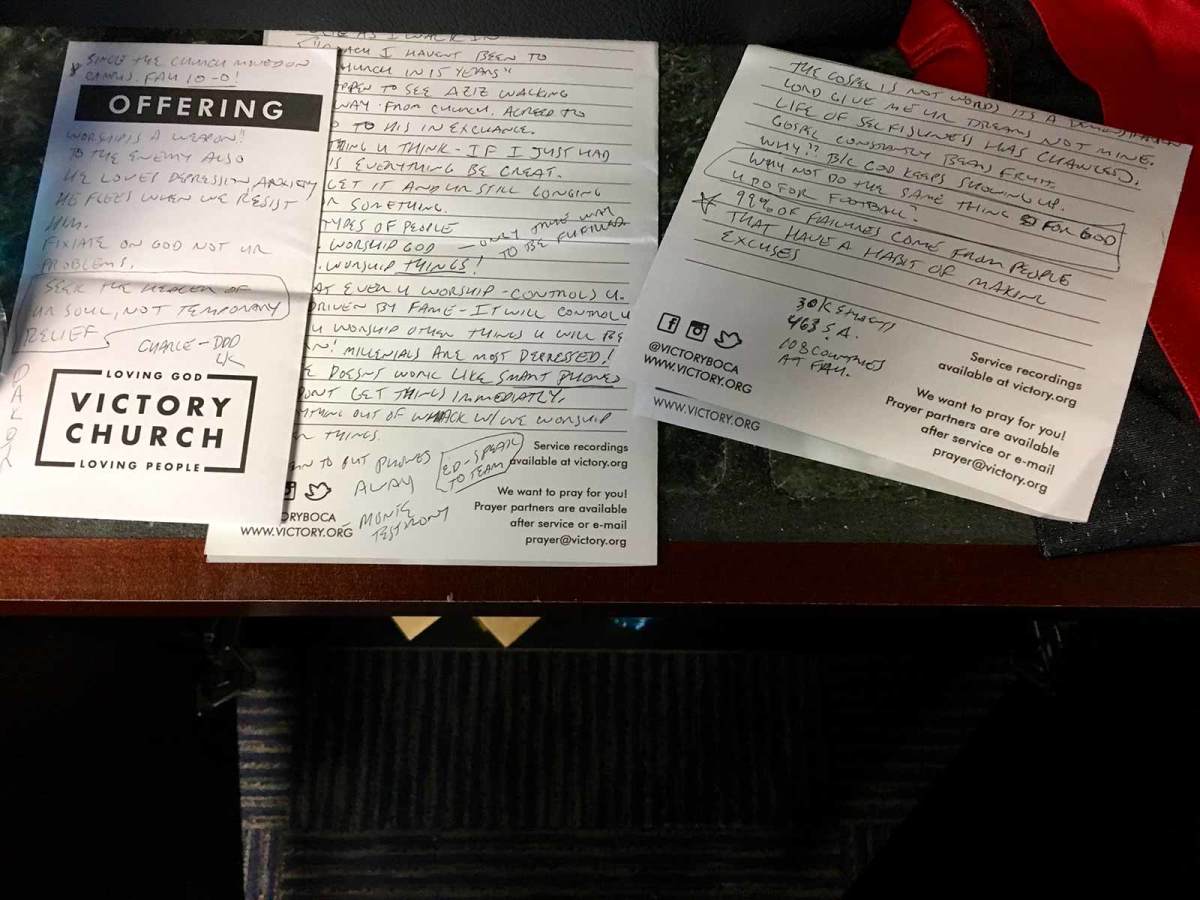 SINCE THE CHURCH MOVED ON
CAMPUS. FAU 10-0!
OFFERING
WORSHIP IS A WEAPON!
TO THE ENEMY ALSO
HE LOVES DEPRESSION ANXIETY
HE FLEES WHEN WE RESIST
HIM.
FIXIATE ON GOD NOT UR
PROBLEMS.
SEEK THE HEALER OF
UR SOUL, NOT TEMPORARY
RELIEF
CHARLE - DDD
LK
LOVING GOD
VICTORY
CHURCH
LOVING PEOPLE
AS I WALK IN
COACH I HAVENT BEEN TO
CHURCH IN 15 YEARS"
TO SEE AZIZ WALKING
WAY FROM CHURCH. AGREED TO
TO HIS IN EXCHANGE.
THING U THINK - IF I JUST HAD
IS EVERYTHING BE GREAT.
GET IT AND UR STILL LONGING
SOMETHING.
TYPES OF PEOPLE
WORSHIP GOD - ONLY TRUE WAY
TO BE FULFILLED
WORSHIP THINGS!
AT EVER U WORSHIP - CONTROLS U.
DRIVEN BY FAME - IT WILL CONTROL U
U WORSHIP OTHER THINGS U WILL BE
MILLENIALS ARE MOST DEPRESSED!
DOESNT WORK LIKE SMART PHONES
DONT GET THINGS IMMEDIATLY.
THING OUT OF WHACK W/ WE WORSHIP
THINGS.
TO PUT PHONES
AWAY
ED - SPEAK
TO TEAM
MONTE
TESTIMONY
Service recordings
available at victory.org
We want to pray for you!
Prayer partners are available
after service or e-mail
prayer@victory.org
ORYBOCA
WWW.VICTORY.ORG
THE GOSPEL IS NOT WORDS ITS A DEMONSTRATION
LORD GIVE ME UR DREAMS NOT MINE.
LIFE OF SELFISHNESS HAS CHANGED.
GOSPEL CONSTANTLY BEARS FRUIT.
WHY?? B/C GOD KEEPS SHOWING UP.
WHY NOT DO THE SAME THING FOR GOD
U DO FOR FOOTBALL?
99% OF FAILURES COME FROM PEOPLE
THAT HAVE A HABIT OF MAKING
EXCUSES
30K STUDENTS
463 S.A.
108 COUNTRIES
AT FAU.
@VICTORYBOCA
WWW.VICTORY.ORG
WWW.VICTORY.ORG
Service recordings
available at victory.org
We want to pray for you!
Prayer partners are available
after service or e-mail
prayer@victory.org